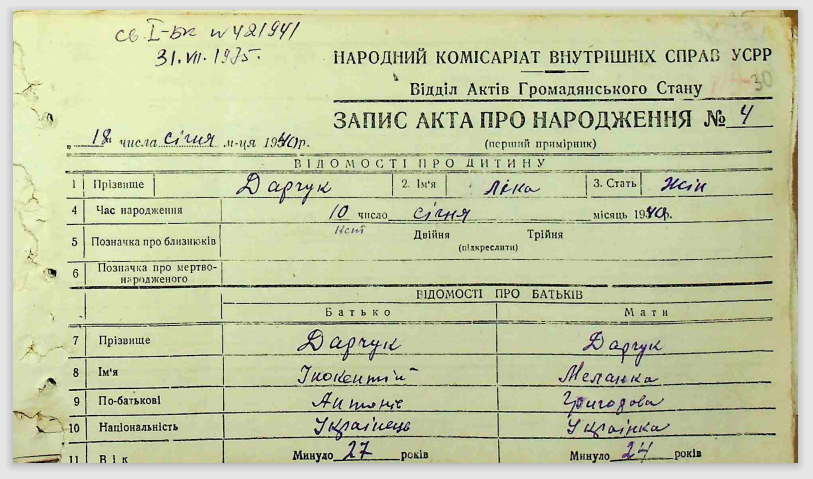 св. I-БК № 421941
31.VII.1975.
НАРОДНИЙ КОМІСАРІАТ ВНУТРІШНІХ СПРАВ УСРР
Відділ Актів Громадянського Стану
30
ЗАПИС АКТА ПРО НАРОДЖЕННЯ № 4
„18" числа січня м-ця 1940р.
(перший примірник)
ВІДОМОСТІ ПРО ДИТИНУ
1 Прізвище Дарчук 2. Ім'я Ліна 3. Стать жін
4 Час народження 10 число січня місяць 1940р.
5 Позначка про близнюків Нет Двійня Трійня
(підкреслити)
6 Позначка про мертво-
народженого
ВІДОМОСТІ ПРО БАТЬКІВ
Батько Мати
7 Прізвище Дарчук Дарчук
8 Ім'я Інокентій Меланка
9 По-батькові Антонів Григорова
10 Національність Українець Українка
11 Вік Минуло 27 років Минуло 24 років